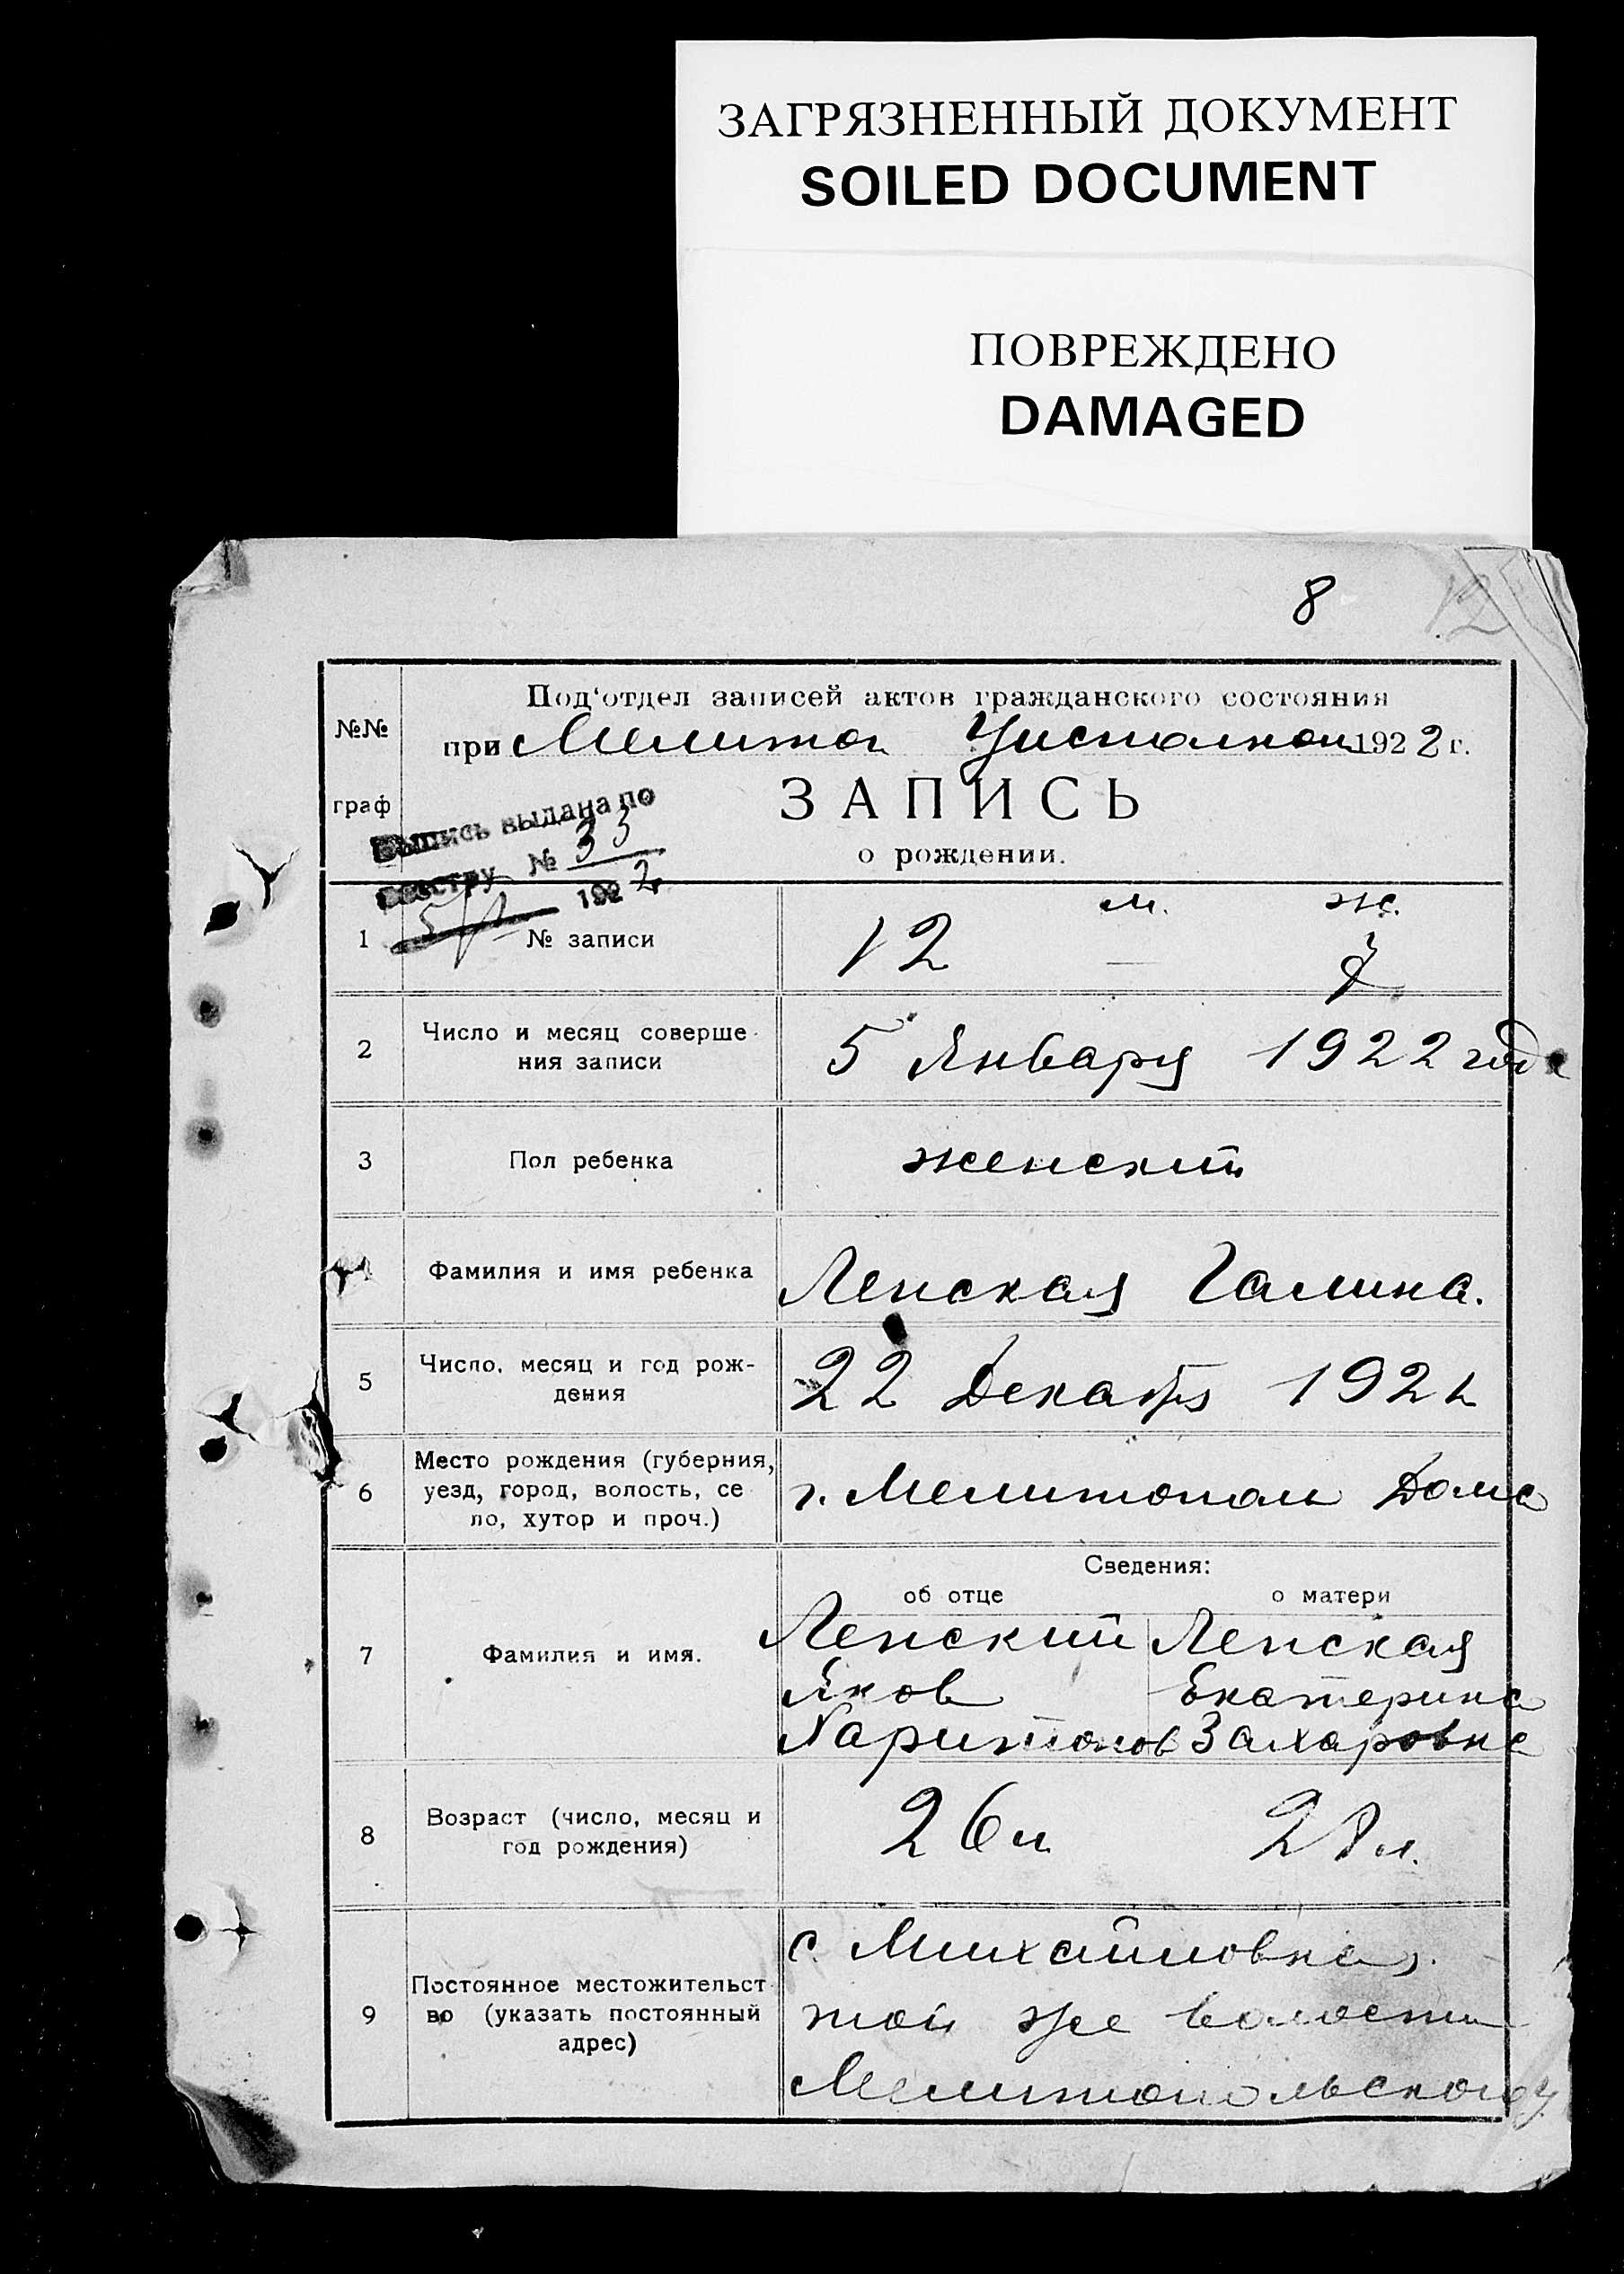 ЗАГРЯЗНЕННЫЙ ДОКУМЕНТ
SOILED DOCUMENT
ПОВРЕЖДЕНО
DAMAGED
8
12
№№
граф
Под'отдел записей актов гражданского состояния
при Мелитоп Уисполком 1922 г.
ЗАПИСЬ
о рождении.
Выпись выдана по
реестру № 33
5/I 1922
1
№ записи
12 м. — ж. 7
2
Число и месяц соверше-
ния записи
5 Января 1922 года
3
Пол ребенка
женский
Фамилия и имя ребенка
Ленская Галина.
5
Число, месяц и год рож-
дения
22 Декабря 1921
6
Место рождения (губерния,
уезд, город, волость, се
ло, хутор и проч.)
г. Мелитополь Дома
7
Фамилия и имя.
Сведения:
об отце
о матери
Ленский
Яков
Харитонов
Ленская
Екатерина
Захаровна
8
Возраст (число, месяц и
год рождения)
26 л
28 л.
9
Постоянное местожительст
во (указать постоянный
адрес)
с. Михайловка,
той же волости
Мелитопольского у.